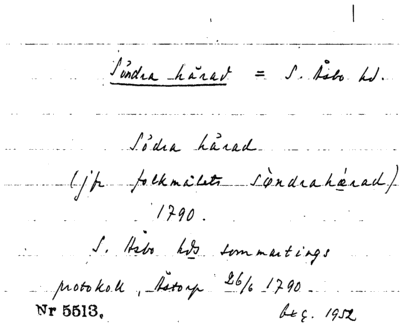 Söndra härad = S. Åsbo hd.
Södra härad
(jfr folkmålets söndrahärad)
1790.
S. Åsbo hds sommartings
protokoll, Åstorp 26/6 1790.
Nr 5513. 1952